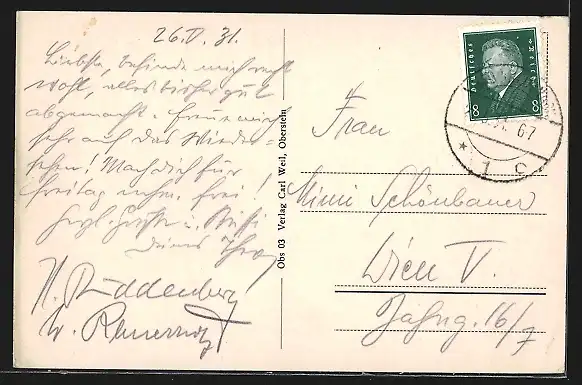 26.V.31.
Liebste, befinde mich recht
wohl, alles bisher gut
abgemacht. Freue mich
sehr auf das Wieder-
sehen! Mach dich für
Freitag nchm. frei!
Herzl. Grüße u. Bussi
deines
H.
W.
Obs 03 Verlag Carl Weil, Oberstein
DEUTSCHES REICH
8 8
6-7
* 1 c
Frau
Mimi Schönbauer
Wien V.
16/7